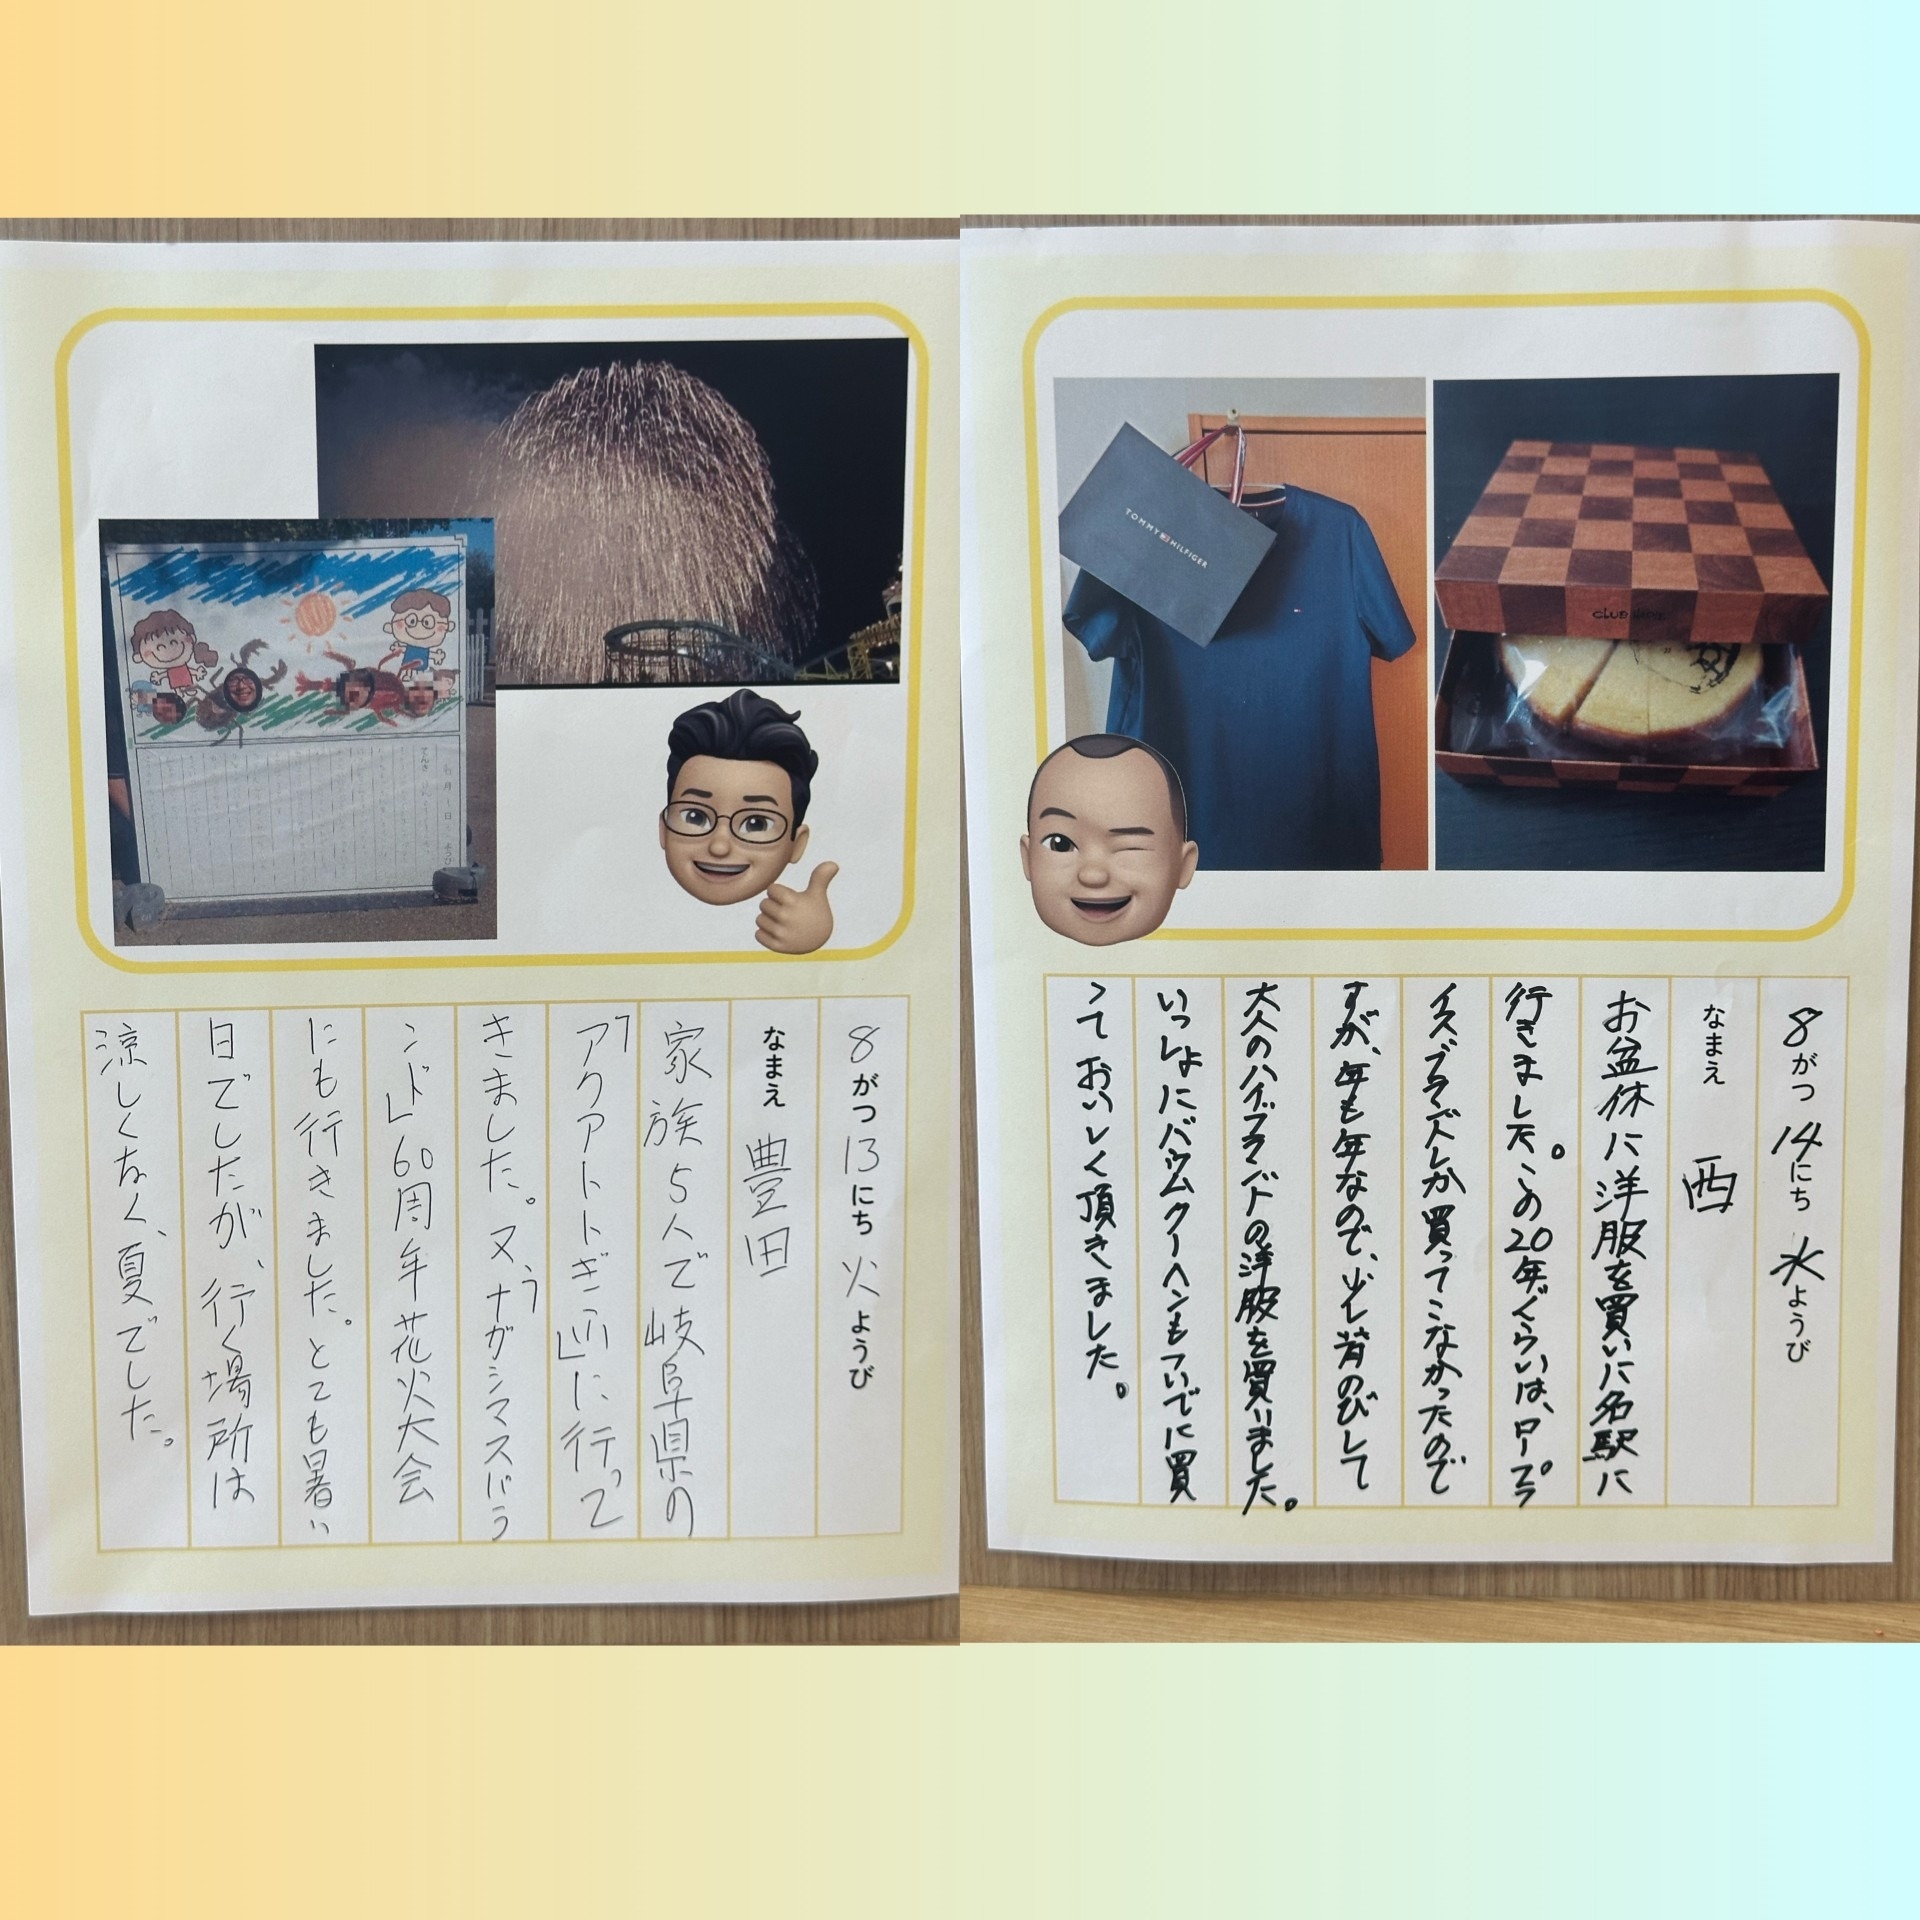 8がつ13にち火ようび
なまえ 豊田
家族5人で岐阜県の
「アクアトトぎふ」に行って
きました。又、「ナガシマスパーラ
ンド」60周年花火大会
にも行きました。とても暑い
日でしたが、行く場所は
涼しくなく、夏でした。
TOMMY HILFIGER
8がつ14にち水ようび
なまえ 西
お盆休に洋服を買いに名駅に
行きました。この20年ぐらいは、ロープラ
イスブランドしか買ってこなかったので
すが、年も年なので、少し背のびして
大人のハイブランドの洋服を買いました。
いっしょにバウムクーヘンもついでに買
っておいしく頂きました。